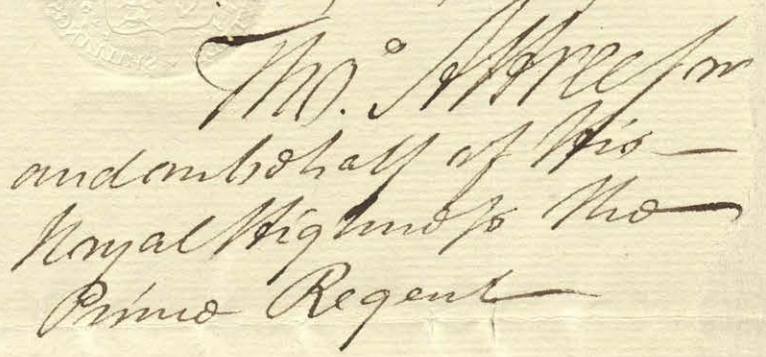 Tho. for
and on behalf of His
Royal Highness the
Prince Regent